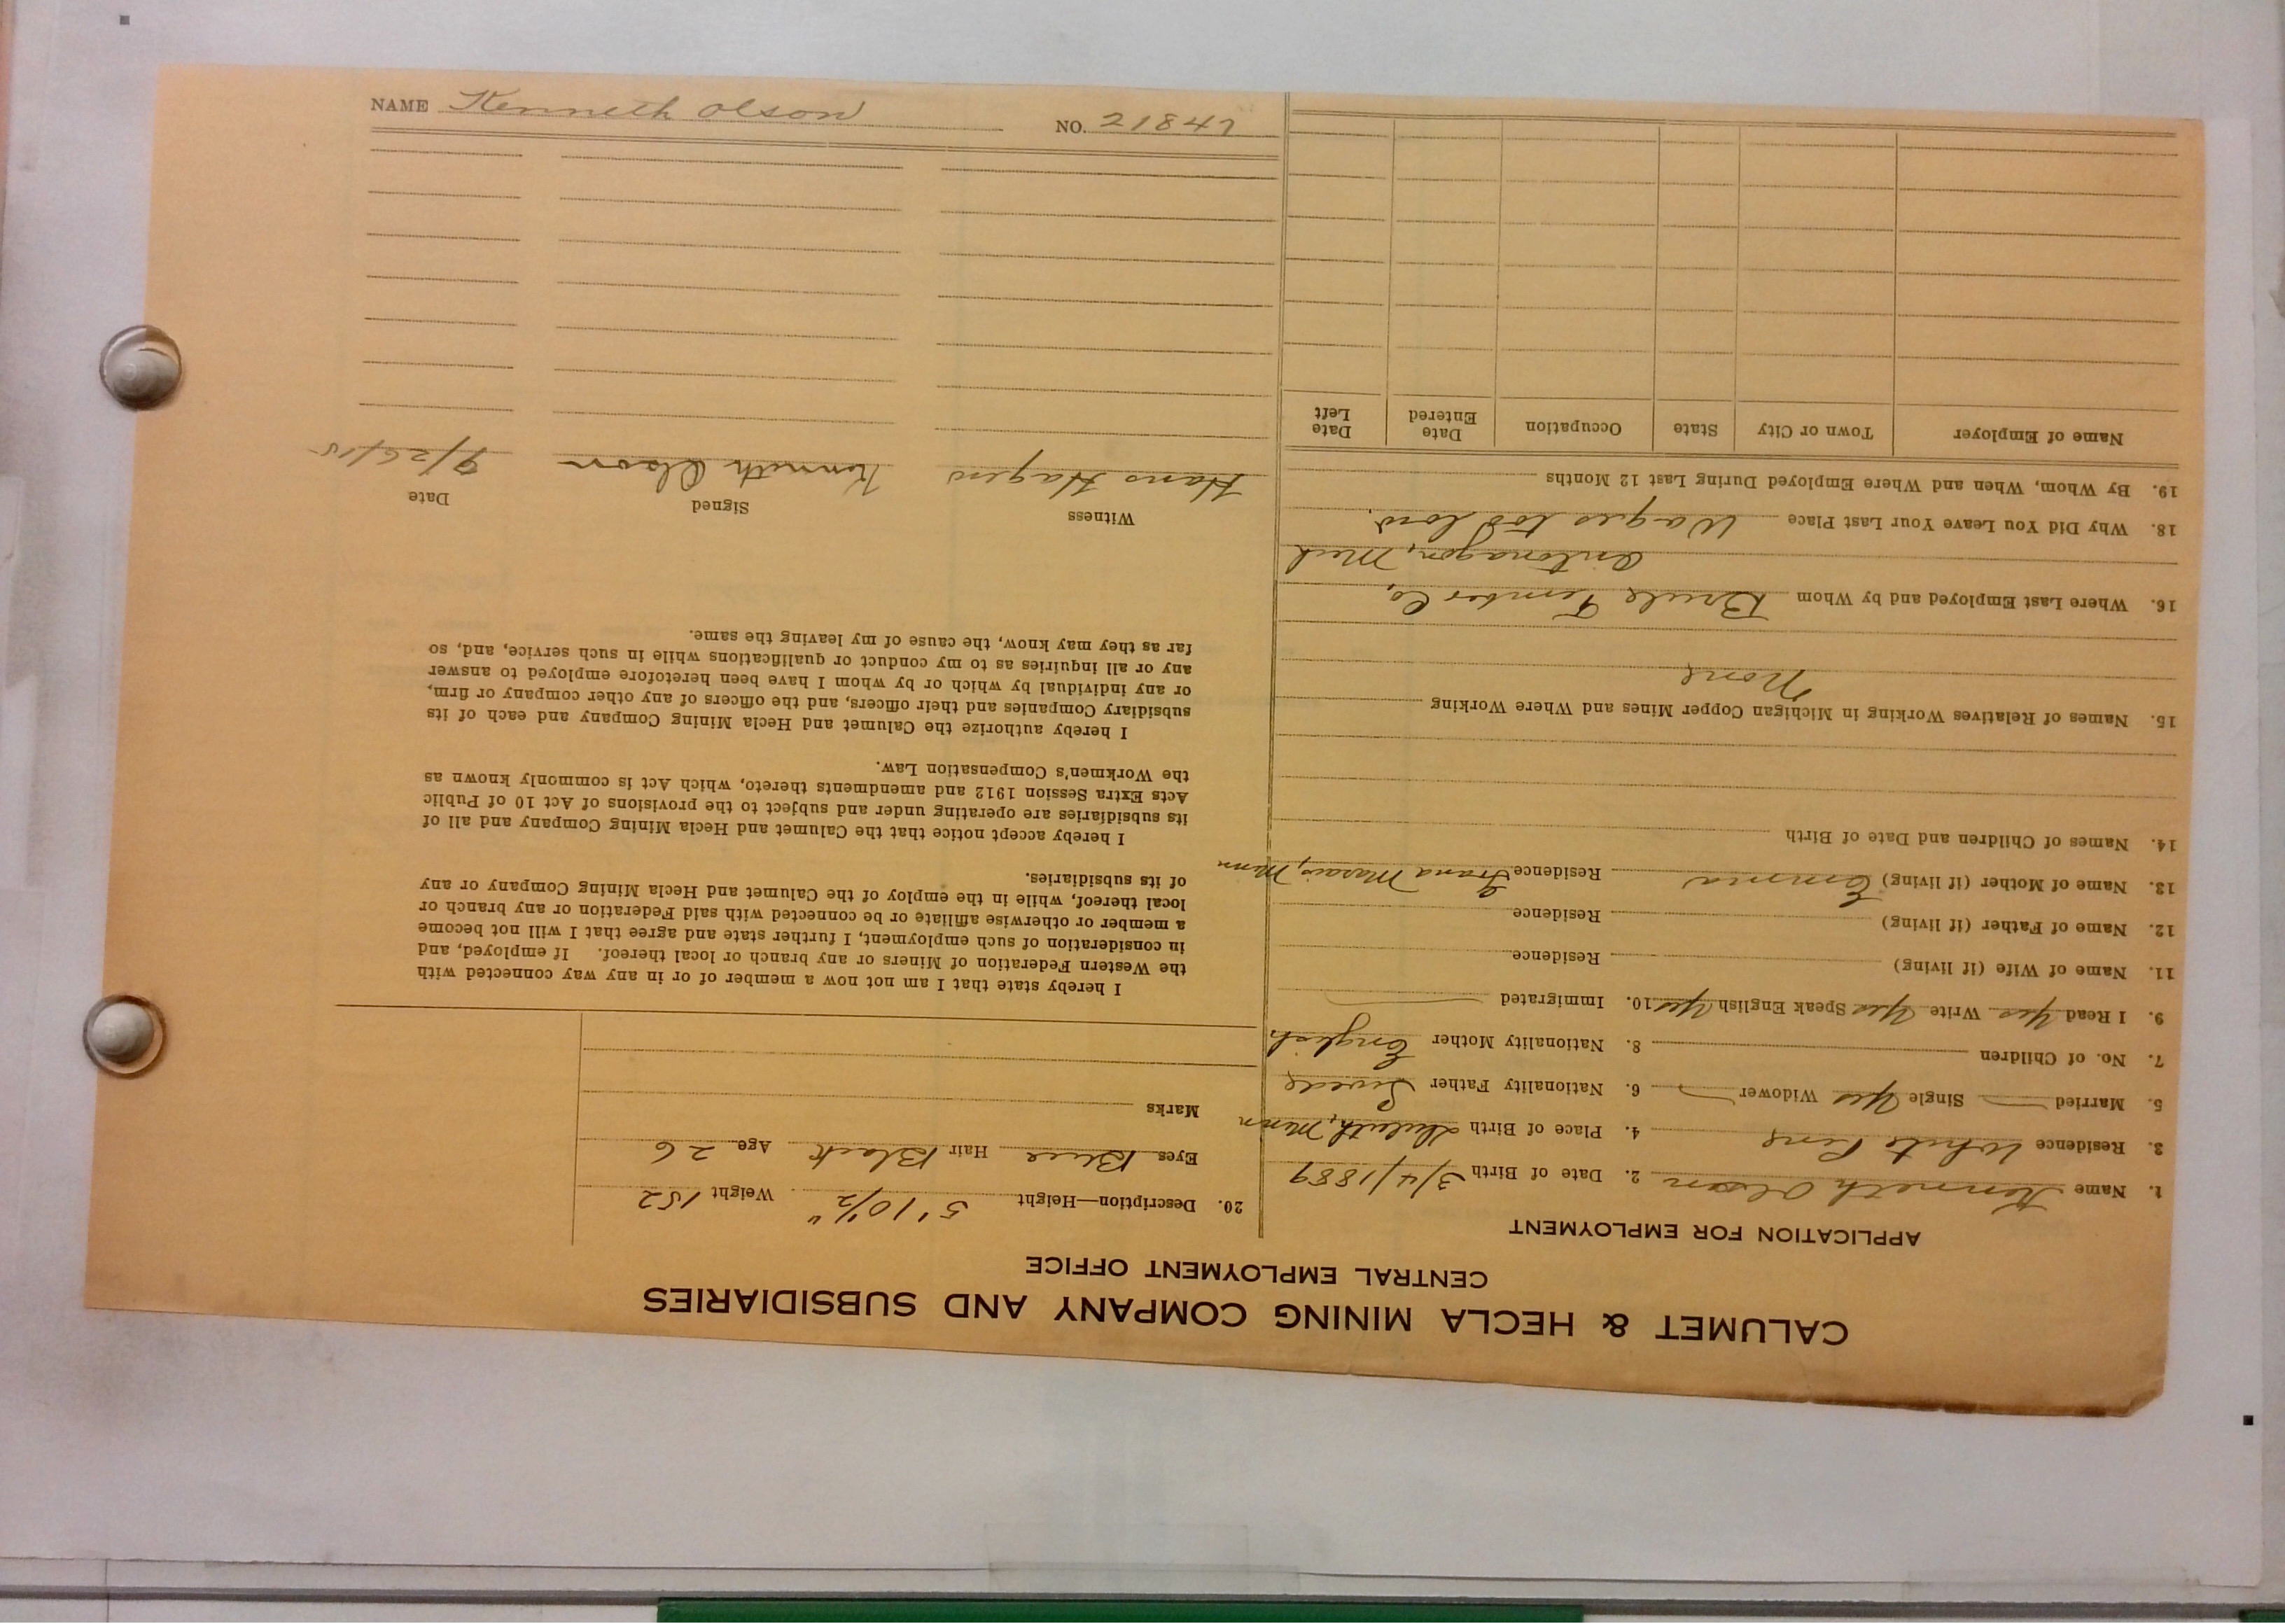 CALUMET & HECLA MINING COMPANY AND SUBSIDIARIES
CENTRAL EMPLOYMENT OFFICE
APPLICATION FOR EMPLOYMENT
1. Name Kenneth Olson 2. Date of Birth 3/4/1889
3. Residence White Pine 4. Place of Birth Duluth, Minn
5. Married Single Yes Widower 6. Nationality Father Swede
7. No. of Children 8. Nationality Mother English
9. I Read Yes Write Yes Speak English Yes 10. Immigrated
11. Name of Wife (if living) Residence
12. Name of Father (if living) Residence
13. Name of Mother (if living) Emma Residence Grand Minn
14. Names of Children and Date of Birth
15. Names of Relatives Working in Michigan Copper Mines and Where Working
None
16. Where Last Employed and by Whom Brule Timber Co,
Ontonagon, Mich
18. Why Did You Leave Your Last Place Wages too low.
19. By Whom, When and Where Employed During Last 12 Months
Name of Employer Town or City State Occupation Date Entered Date Left
20. Description—Height 5' 10 1/2" Weight 152
Eyes Blue Hair Black Age 26
Marks
I hereby state that I am not now a member of or in any way connected with
the Western Federation of Miners or any branch or local thereof. If employed, and
in consideration of such employment, I further state and agree that I will not become
a member or otherwise affiliate or be connected with said Federation or any branch or
local thereof, while in the employ of the Calumet and Hecla Mining Company or any
of its subsidiaries.
I hereby accept notice that the Calumet and Hecla Mining Company and all of
its subsidiaries are operating under and subject to the provisions of Act 10 of Public
Acts Extra Session 1912 and amendments thereto, which Act is commonly known as
the Workmen's Compensation Law.
I hereby authorize the Calumet and Hecla Mining Company and each of its
subsidiary Companies and their officers, and the officers of any other company or firm,
or any individual by which or by whom I have been heretofore employed to answer
any or all inquiries as to my conduct or qualifications while in such service, and, so
far as they may know, the cause of my leaving the same.
Witness Signed Date
Hans Hagen Kenneth Olson 9/26/15
NAME Kenneth Olson NO. 21847